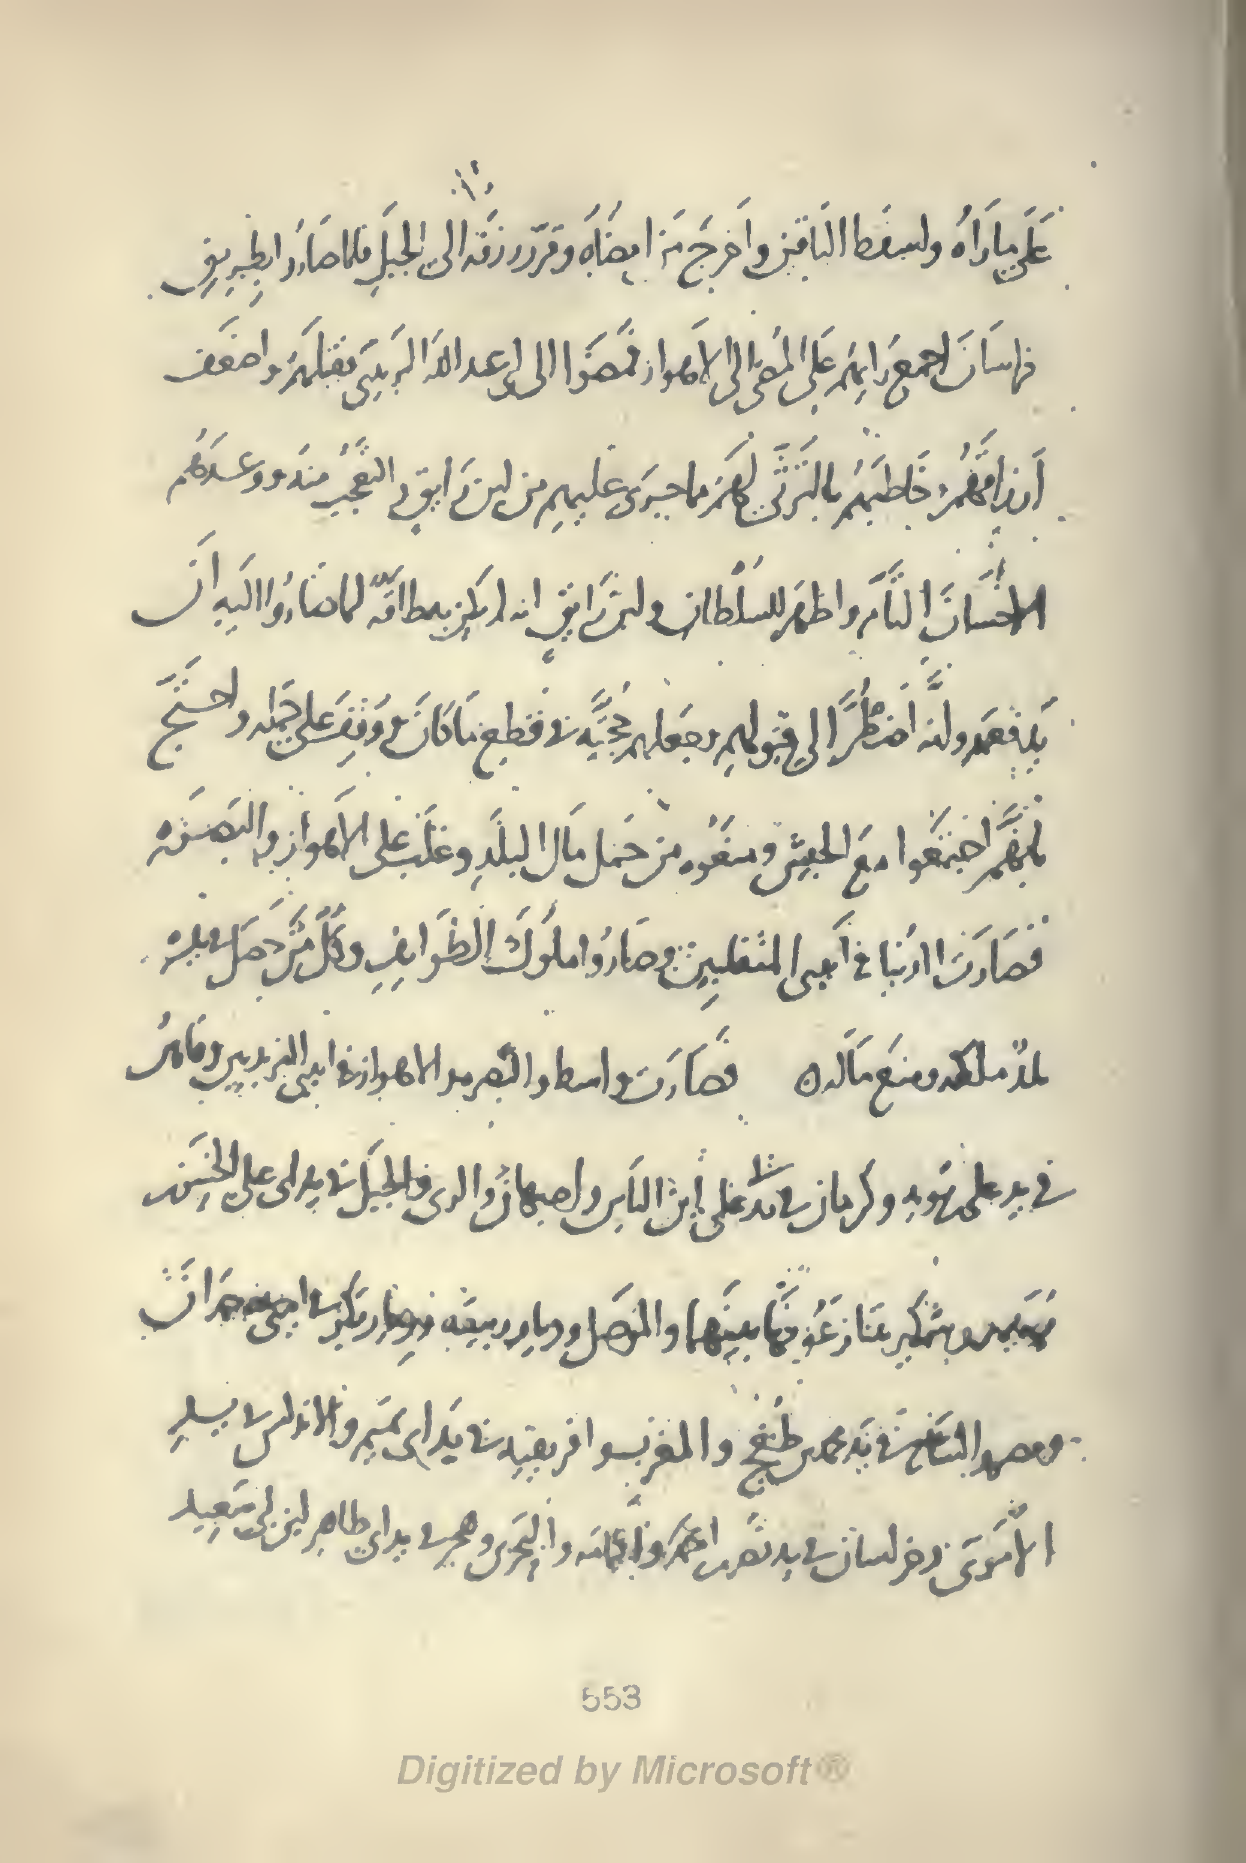 على ما رآه واسقط الباقين واخرج من ارتضاه وقرر رزقه الى الجبل فلما صاروا بطريق
خراسان اجمع رايهم على المضى الى الاهواز فمضوا الى ابى عبد الله البريدى فقبلهم واضعف
ارزاقهم وخاطبهم بالترثى لهم مما جرى عليهم من ابن رايق والتعجب منه ووعدهم
الاحسان التام واظهر للسلطان ولابن رايق انه لم يكن به طاقة لما صاروا اليه ان
يدفعهم وانه اضطر الى قبولهم وجعلهم حجة فى قطع ما كان ووقف على حمله واحتج
بانهم اجتمعوا مع الجيش ومنعوه من حمل مال البلد وغلب على الاهواز والبصره
فصارت الدنيا فى ايدى المتغلبين وصاروا ملوك الطوايف وكل من حصل فى يده
بلد ملكه ومنع ماله فصارت واسط والبصره والاهواز فى ايدى البريديين وفارس
فى يد على بن بويه وكرمان فى يد ابى على ابن الياس واصبهان والرى والجبل فى يد ابى على الحسن بن
بويه ويد وشمكير يتنازعون فيما بينهما والموصل وديار ربيعه وديار بكر فى ايدى بنى حمدان
ومصر والشام فى يد محمد بن طغج والمغرب وافريقيه فى يد ابى تميم والاندلس فى يد
الاموى وخراسان فى يد نصر بن احمد واليمامه والبحرين وهجر فى يد ابى طاهر ابن ابى سعيد
553
Digitized by Microsoft®